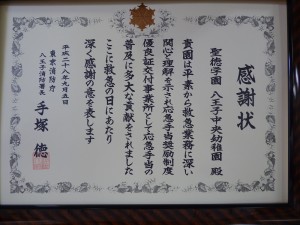 感謝状
聖徳学園 八王子中央幼稚園 殿
貴園は平素から救急業務に深い
関心と理解を示され応急手当奨励制度
優良証交付事業所として応急手当の
普及に多大な貢献をされました
ここに救急の日にあたり
深く感謝の意を表します
平成二十八年九月五日
東京消防庁
八王子消防署長 手塚 徳